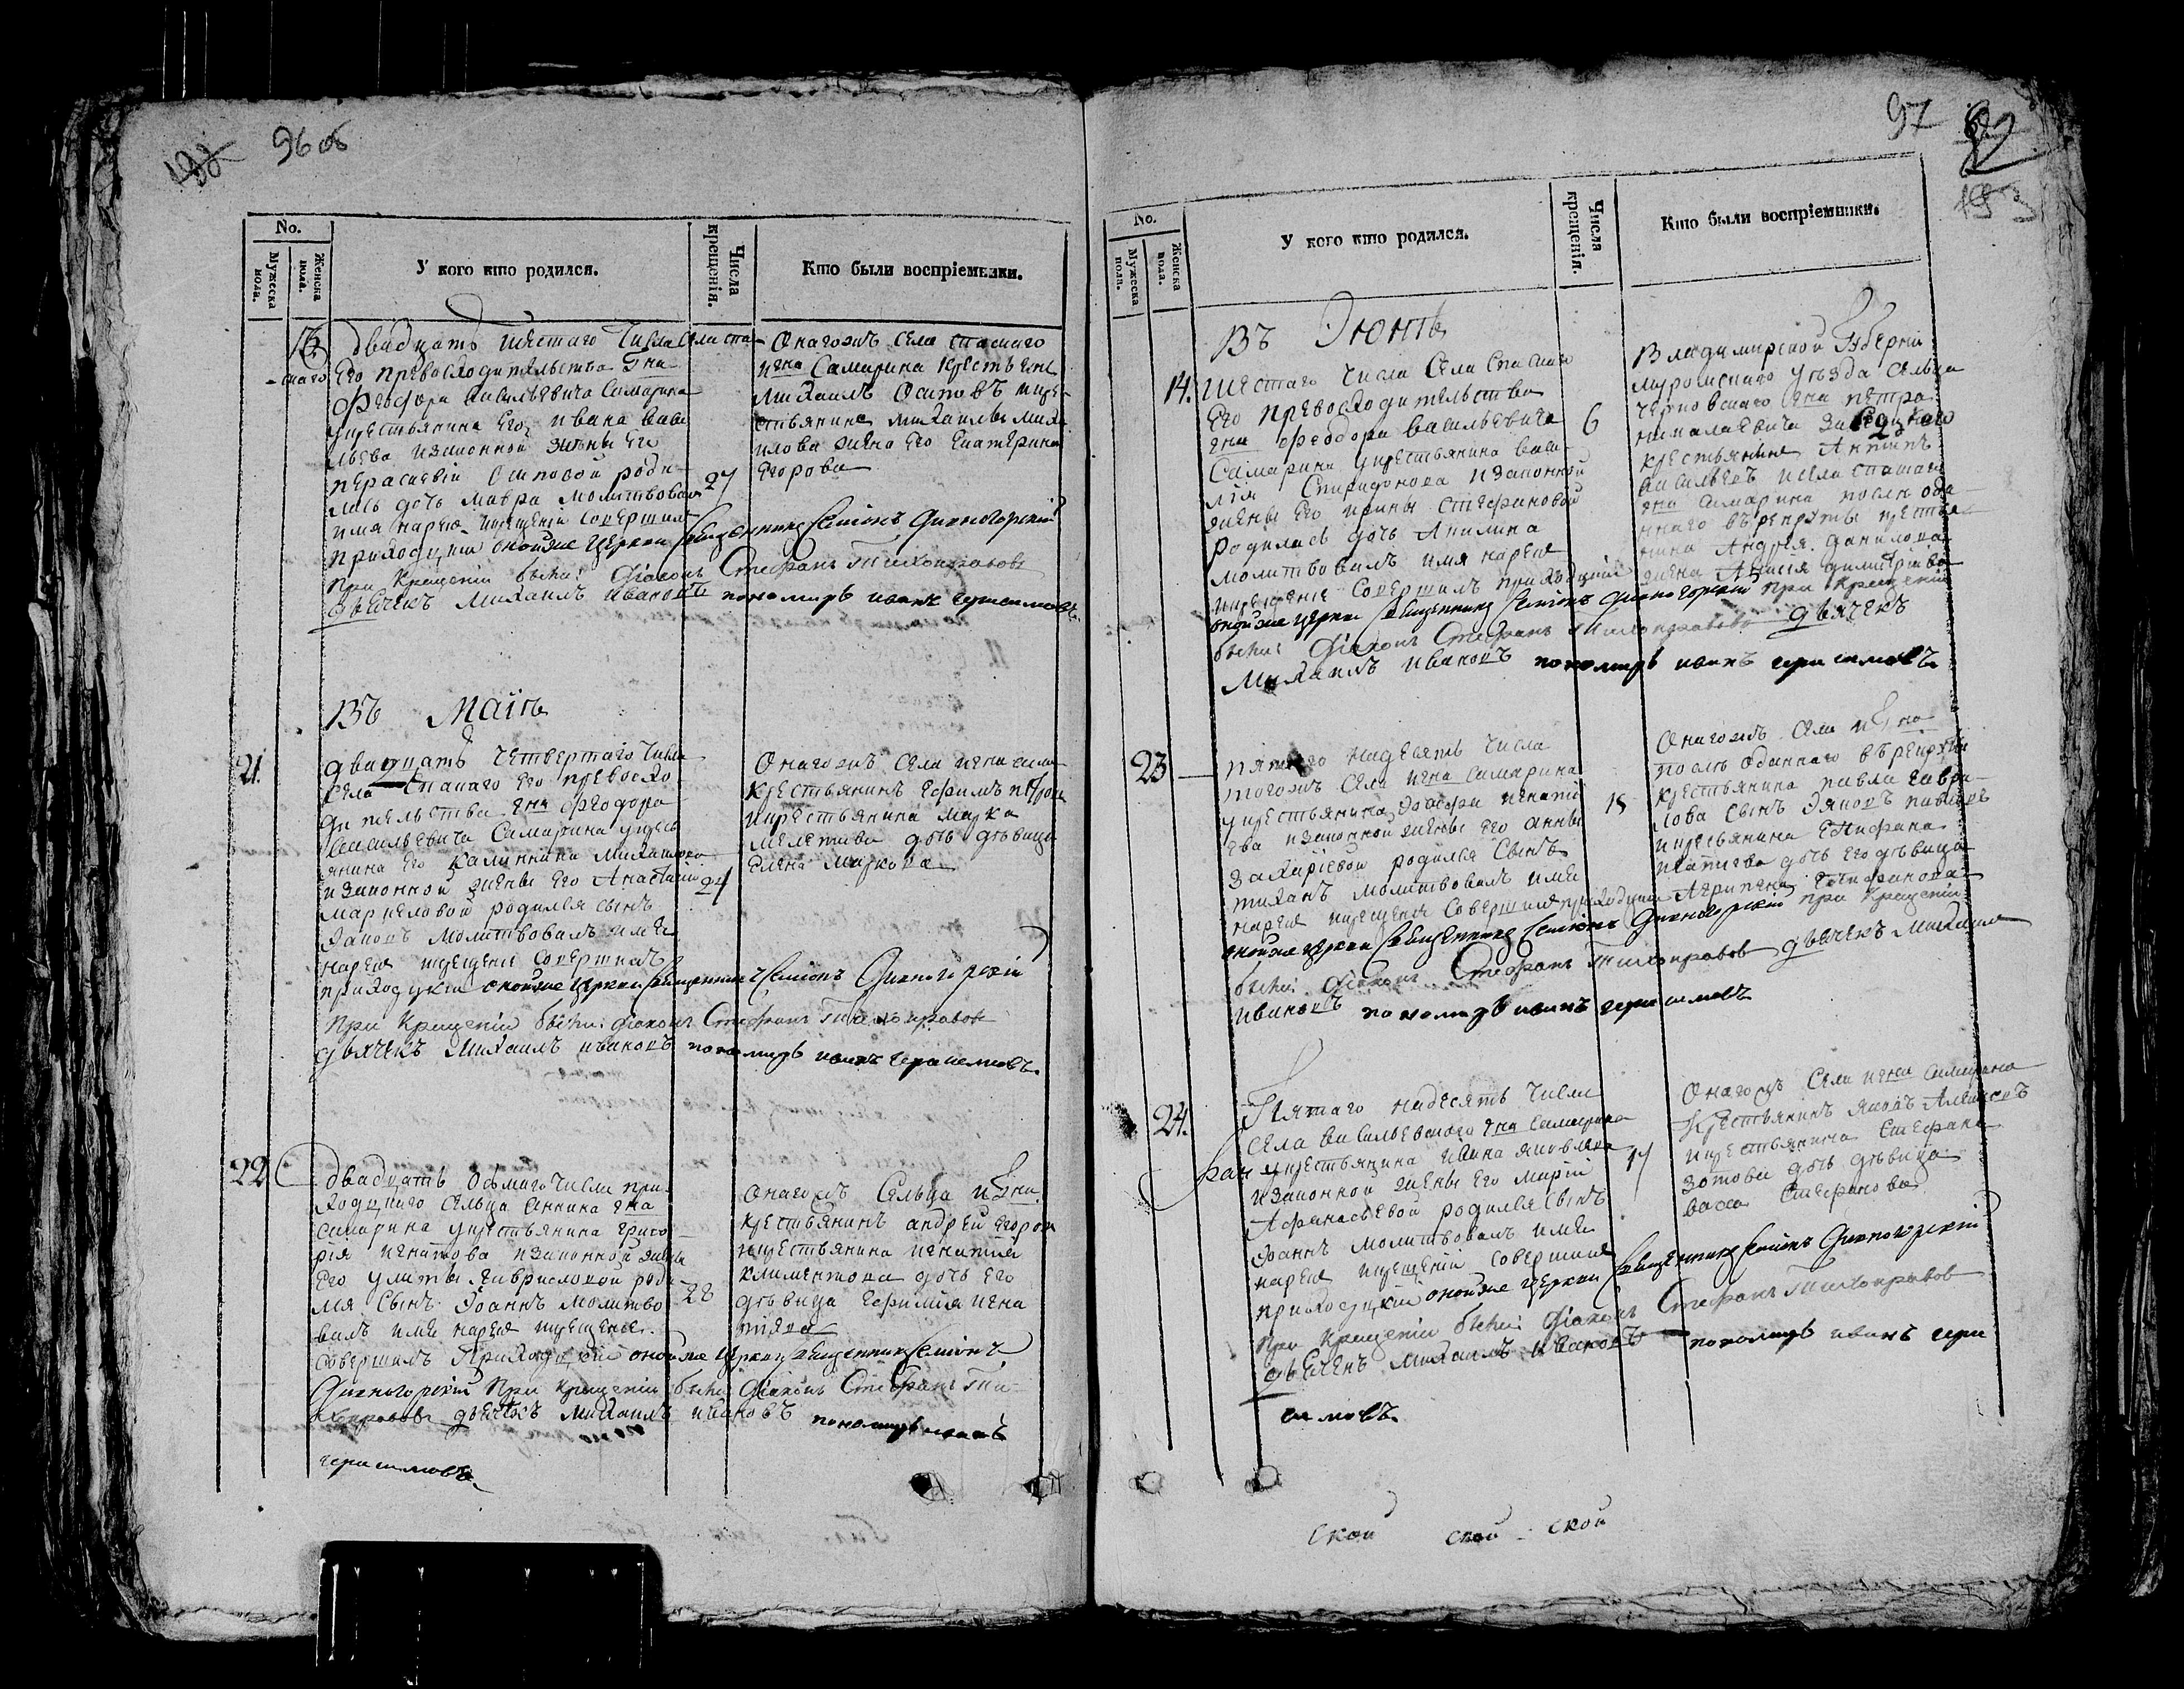 96 об
No.
Мужеска пола.
Женска пола.
У кого кто родился.
Числа крещенія.
Кто были воспріемники.
13. двадцать шестаго числа села спа-
скаго Его превосходительства Гна
Феодора Васильевича Самарина
укрестьянина Его Ивана Васи
льева изаконной жены Его
параскевіи Осиповой роди-
лась дочь мавра молитвовалъ
имя нарекъ икрещеніе совершилъ
приходскій онойже церкви священникъ Симеонъ Дивногорскій
При крещеніи были: діаконъ Стефанъ Тихонравовъ
дьячекъ Михаилъ Ивановъ пономарь иванъ герасимовъ.
27
Онагожъ села спаскаго
Гна Самарина крестьяне
Михаилъ Осиповъ икре-
стьянина михаила миха
илова жена Его Екатерина
Егорова
Въ Маіѣ
21.
двадцать четвертаго числа
села Спаскаго Его превосхо
дительства Гна феодора
Васильевича Самарина укресть
янина Его Калинника михаилова
изаконной жены Его Анастасіи
марковой родился сынъ
Іаковъ молитвовалъ имя
нарекъ икрещеніе совершилъ
приходскій онойже церкви священникъ Симеонъ Дивногорскій
При крещеніи были: діаконъ Стефанъ Тихонравовъ
дьячекъ Михаилъ ивановъ пономарь иванъ герасимовъ.
24
Онагожъ села Гна сама
крестьянинъ Ефимъ петровъ
икрестьянина Марка
мелетіева дочь дѣвица
Елена Маркова
22
двадцать осьмаго числа при
ходскаго сельца Аннина Гна
самарина укрестьянина григо
рія игнатова изаконной жены
Его улиты гавриловой роди
лся сынъ Іоаннъ молитво
валъ имя нарекъ икрещеніе
совершилъ Приходскій онойже церкви священникъ Симеонъ
Дивногорскій При крещеніи были діаконъ Стефанъ Ти-
хонравовъ дьячекъ Михаилъ ивановъ пономарь иванъ
герасимовъ
28
онагожъ Сельца иГна
крестьянинъ андрей Егоровъ
икрестьянина игнатія
климентова дочь Его
дѣвица Евфимія игна
тіева
97
No.
Мужеска пола.
Женска пола.
У кого кто родился.
Числа крещенія.
Кто были воспріемники.
Въ Іюнѣ
14. Шестаго числа Села Спаскаго
Его превосходительства
Гна феодора Васильевича
Самарина укрестьянина васи
лія Спиридонова изаконной
жены Его ирины стефановой
родилась дочь Акилина
молитвовалъ имя нарекъ
икрещеніе совершилъ приходскій
онойже церкви священникъ Симеонъ Дивногорскій при крещеніи
были: діаконъ Стефанъ Тихонравовъ дьячекъ
Михаилъ Ивановъ пономарь иванъ герасимовъ.
6
Владимирской Губерніи
муромскаго уѣзда сельца
Гна петра
николаевича
крестьянинъ Антипъ
васильевъ исела спаскаго
Гна самарина послѣ отда
ннаго въ рекруты крестья
нина Андрея данилова
жена димитріева
23
пятаго надесять числа
тогожъ Села Гна самарина
укрестьянина игнаті
ева изаконной жены Его анны
захаріевой родился Сынъ
тихонъ молитвовалъ имя
нарекъ икрещеніе совершилъ приходскій
онойже церкви священникъ Симеонъ Дивногорскій при крещеніи
были: діаконъ Стефанъ Тихонравовъ дьячекъ михаилъ
ивановъ пономарь иванъ герасимовъ
15
Онагожъ села иГна
послѣ отданнаго въ рекруты
крестьянина павла гаври-
лова сынъ Іяковъ павловъ
икрестьянина Епифана
игнатіева дочь Его дѣвица
Агрипена Епифанова
24.
Пятаго надесять числа
села васильевскаго Гна самарина
укрестьянина ивана яковлева
изаконной жены Его маріи
Афанасьевой родился сынъ
Іоаннъ молитвовалъ имя
нарекъ икрещеніе совершилъ
приходскій онойже церкви священникъ Симеонъ Дивногорскій
При крещеніи были: діаконъ Стефанъ Тихонравовъ
дьячекъ михаилъ ивановъ пономарь иванъ гера
симовъ.
17
Онагожъ села Гна самарина
крестьянинъ яковъ Алексеевъ
икрестьянина Стефана
зотова дочь дѣвица
васса Стефанова
ской ской - ской